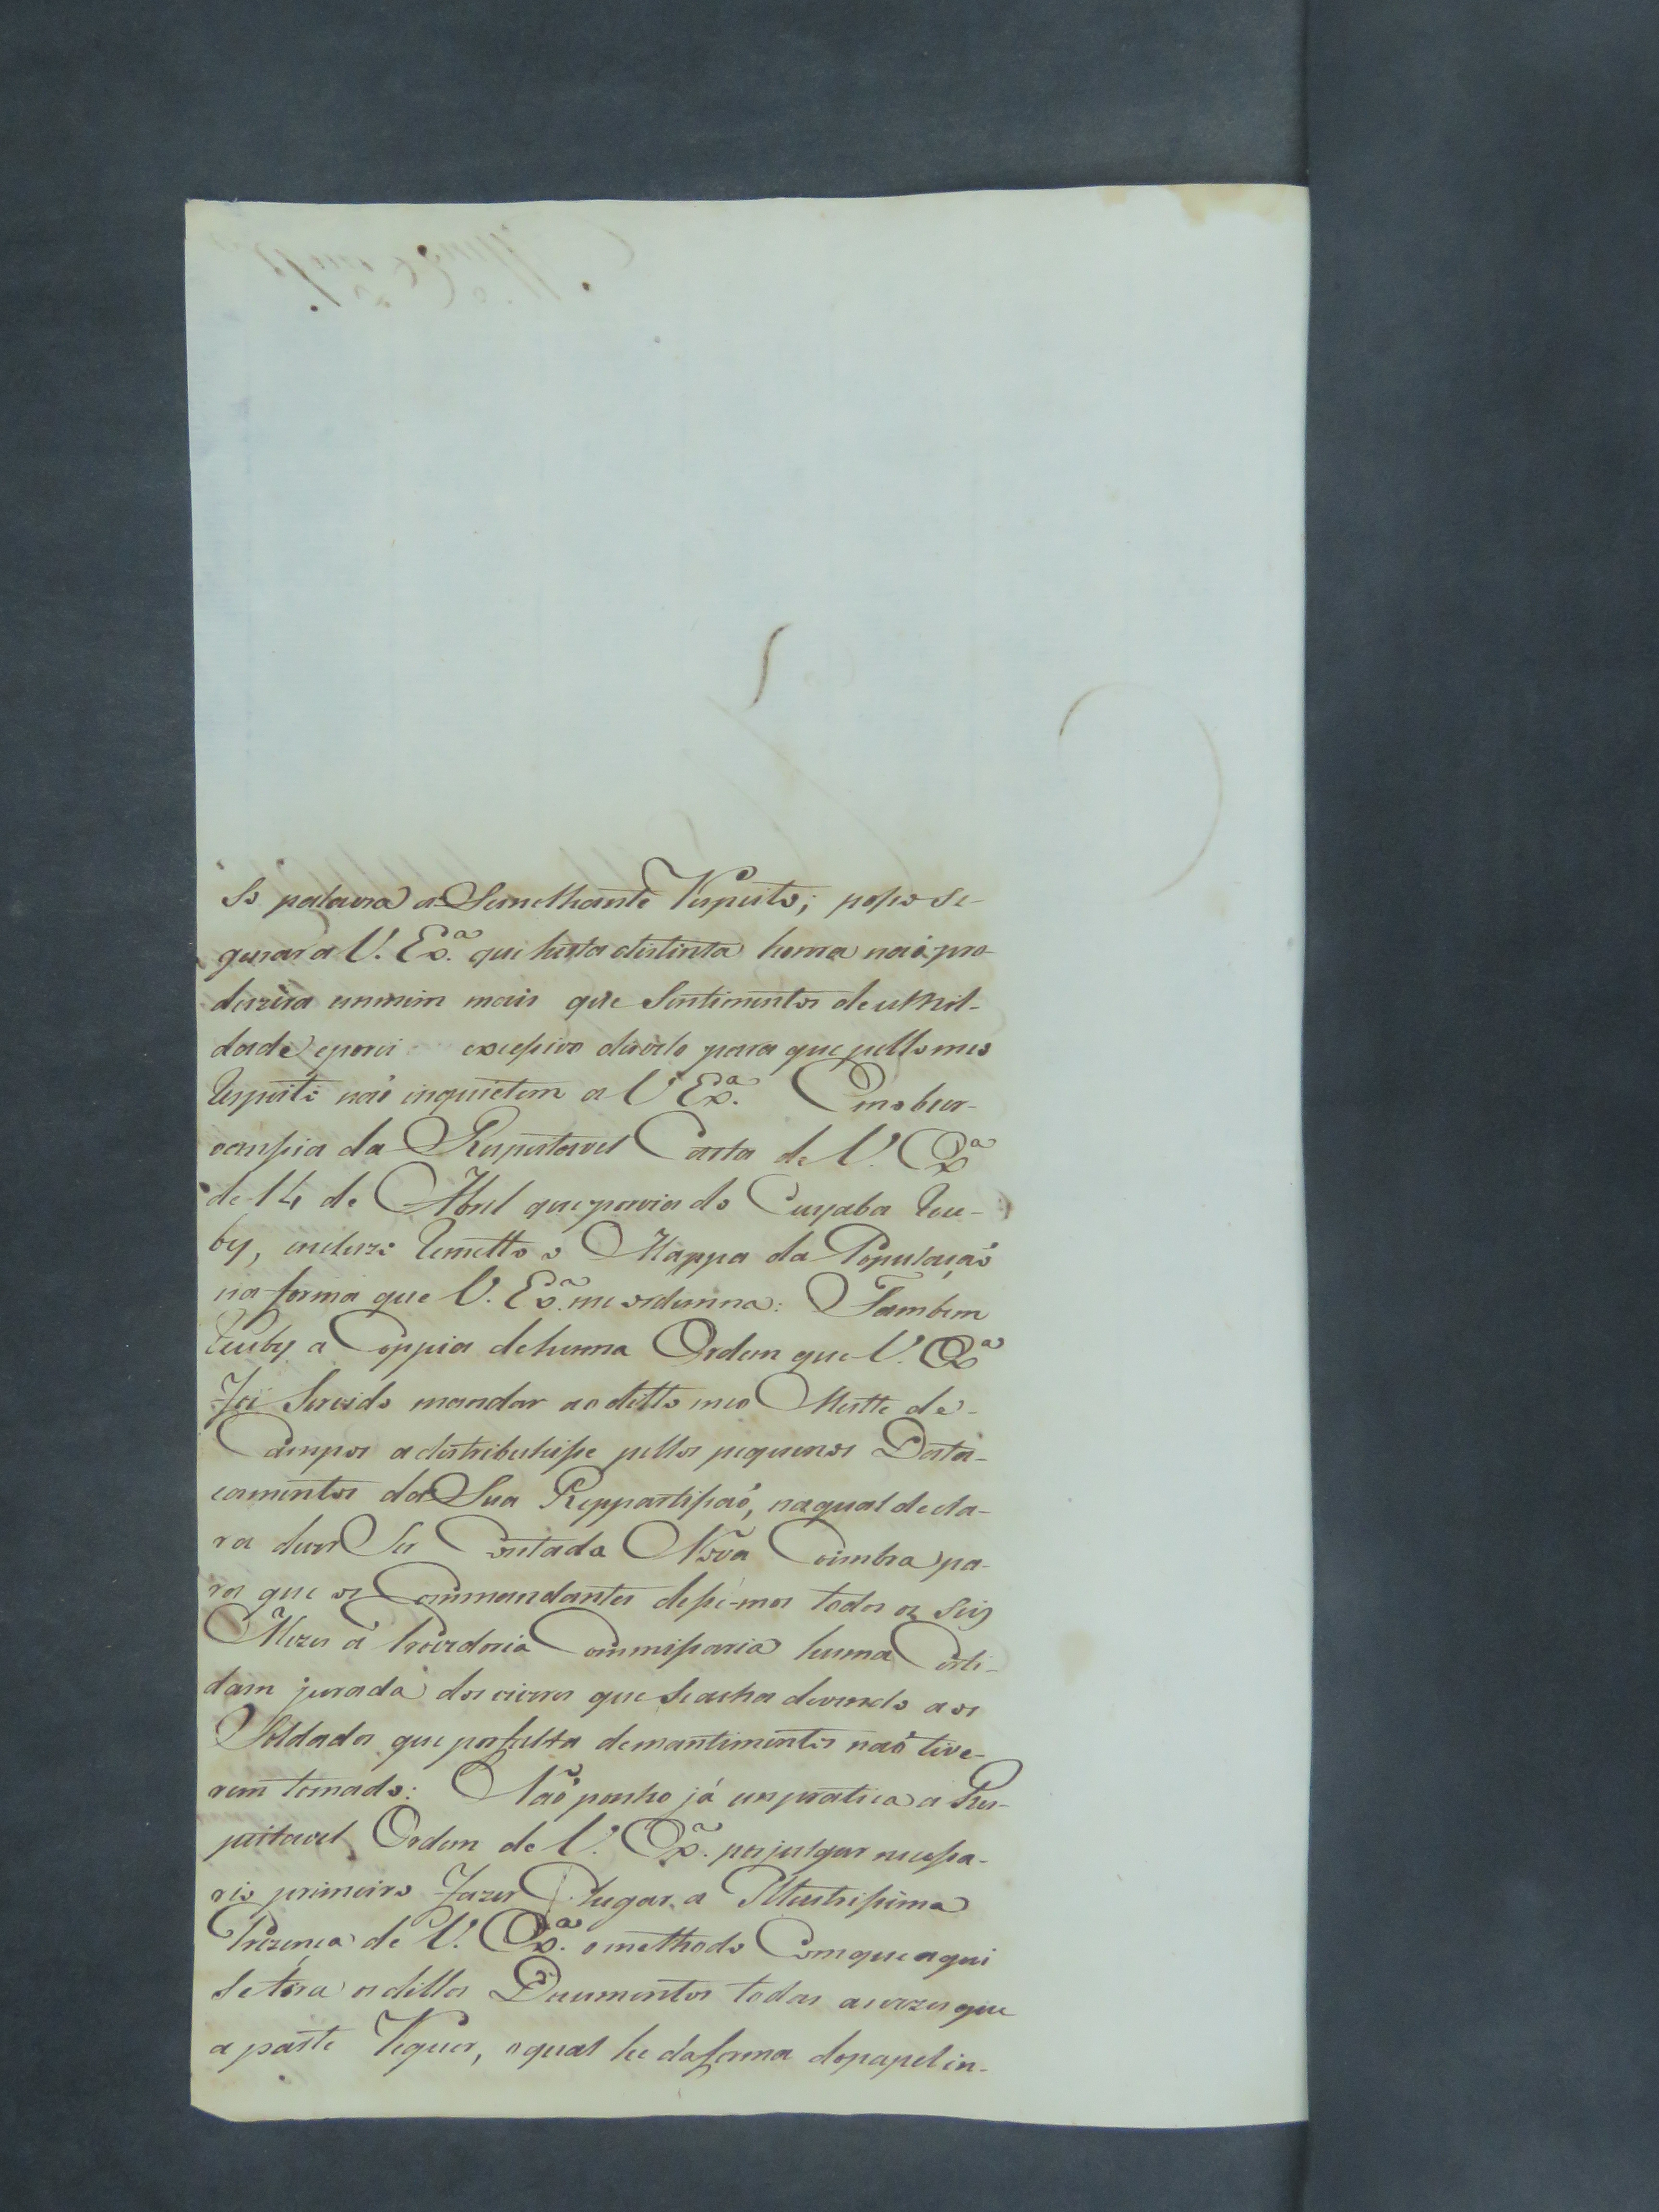 So palavra a Semelhante Respeito; posso Se-
gurar a V. Exª. que hesta distinta honra naõ pro-
duzira emmim mais que Sentimentos de umil-
dade, eporei excessivo disvelo para que pello meo
Respeito naõ inquietem a V Exª. Em obser-
vanssia da Respeitavel Carta de V. Exª
de 14 de Abril que por via do Cuyaba Rece-
by, incluzo Remetto o Mappa da Populaçaõ
na forma que V. Exª. me ordenna: Tambem
Reciby a Coppia de huma Ordem que V. Exª
foi Servido mandar ao ditto meo Mestre de
Campos a destribuhisse pellos pequenos Desta-
camentos da Sua Reppartissaõ, na qual decla-
ra dever Ser Contada Nova Coimbra pa-
ra que os Commandantes de todos os Seis
Mezes á Provedoria Commissaria huma Certi-
dam jurada dos viveres que Se acha devendo aos
Soldados que por falta de mantimentos naõ tive-
rem tomado: Naõ ponho já em pratica a Res-
peitavel Ordem de V. Exª. por julgar necessa-
rio primeiro fazer Chegar a Illustrissima
Prezença de V. Exª. o methodo Com que aqui
Se tira os dittos Documentos todas as vezes que
a parte Requer, o qual he da forma do papel in-